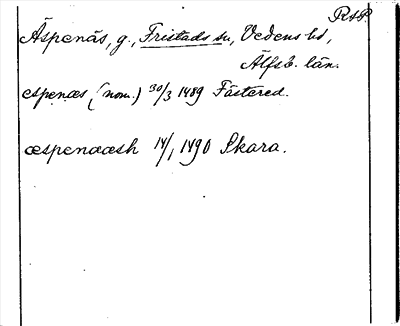 RAP
Äspenäs, g., Fristads sn, Vedens hd,
Älfsb. län.
espenæs (nom.) 30/3 1489 Fästered.
æspenææsh 14/1 1490 Skara.